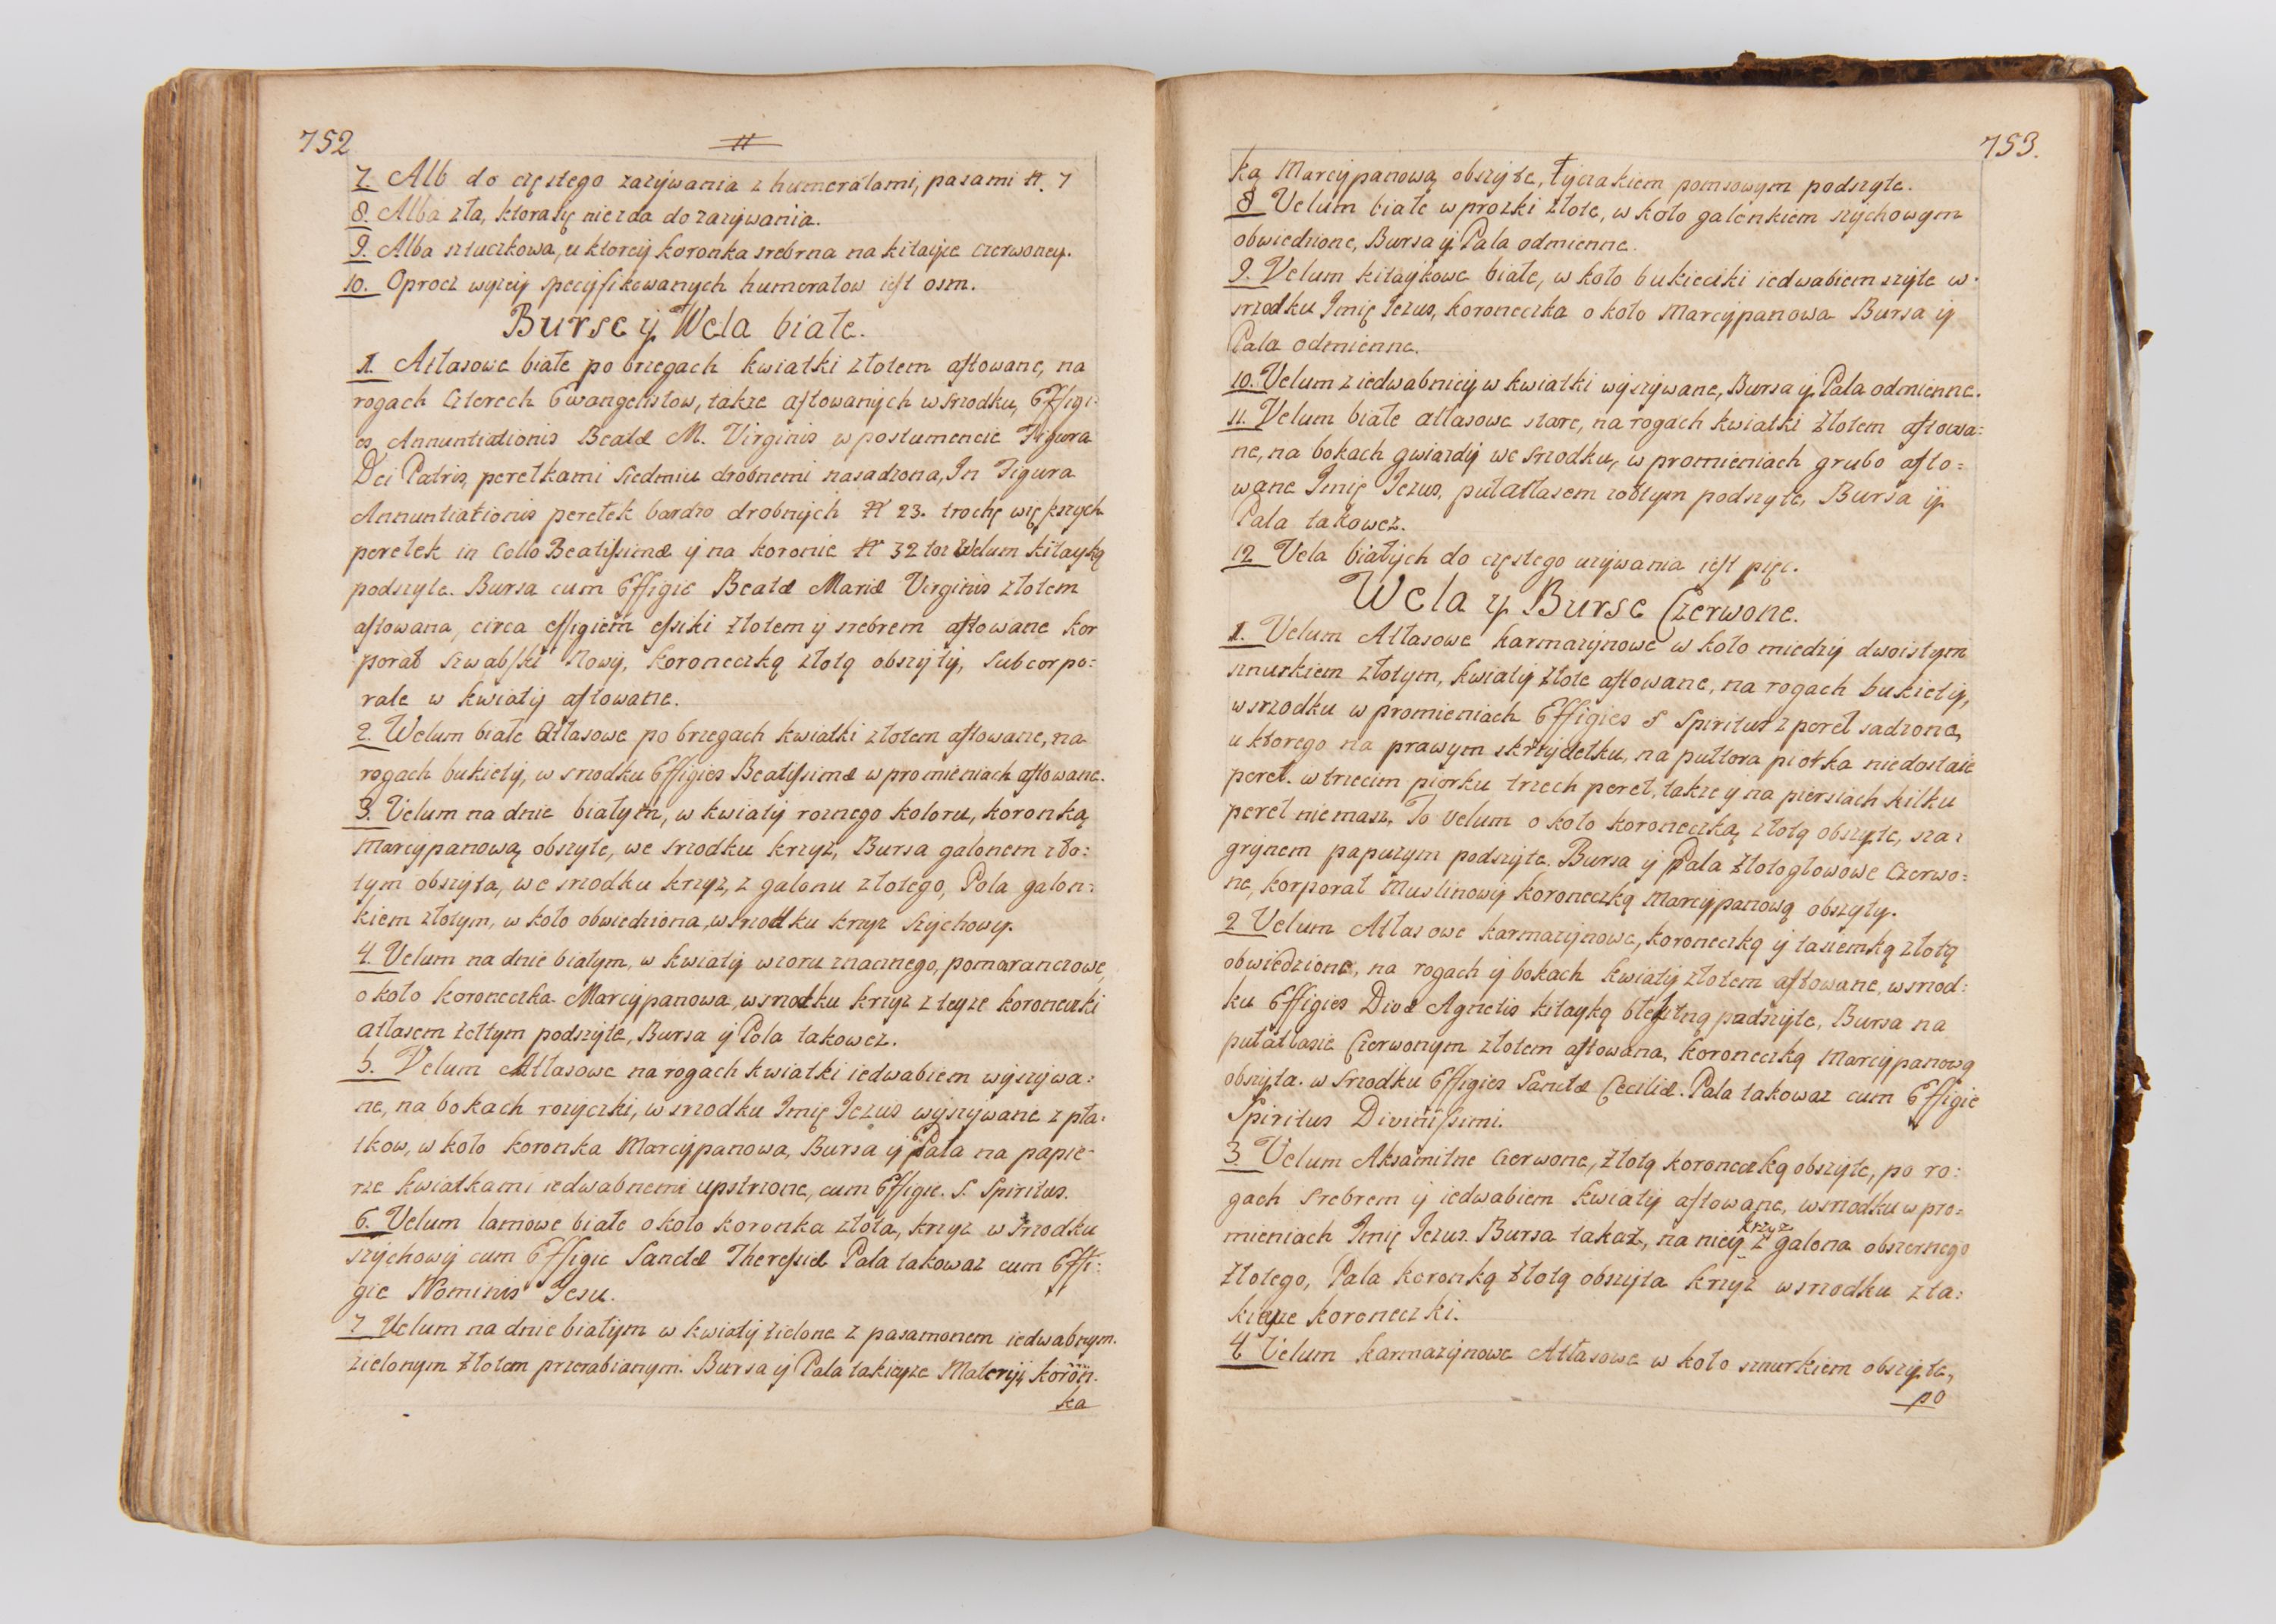 752
#
7. Alb do częstego zazywania z humerałami, pasami #. 7
8. Alba zła, ktora się niezda do zazywania.
9. Alba sztuczkowa, u ktorey koronka srebrna na kitayce czerwoney.
10. Oprocz wyzey specyfikowanych humerałow iest osm.
Burse ÿ Wela białe.
1. Atłasowe białe po brzegach kwiatki złotem aftowane, na
rogach czterech Ewangelistow, także aftowanych w srzodku, Effigi-
es Annuntiationis Beatæ M. Virginis w postumencie Figura
Dei Patris, perełkami siedmiu drobnemi nasadzona, In Figura
Annuntiationis perełek bardzo drobnych # 23. trochę większych
perełek in Collo Beatissimæ ÿ na koronie # 32 toz Welum kitayką
podszyte. Bursa cum Effigie Beatæ Mariæ Virginis złotem
aftowana, circa effigiem essiki złotem ÿ srebrem aftowane kor
porał szwabski nowÿ, koroneczką złotą obszytÿ, subcorpo:
rale w kwiatÿ aftowane.
2. Welum białe Atłasowe po brzegach kwiatki złotem aftowane, na
rogach bukietÿ, w srzodku Effigies Beatissimæ w promieniach aftowane.
3. Velum na dnie białym, w kwiatÿ roznego koloru, koronką
Marcÿpanową obszyte, we srzodku krzyz, Bursa galonem zło:
tym obszyta, we srzodku krzyz, z galonu złotego, Pala galon:
kiem złotym, w koło obwiedziona, w srzodku krzyz szychowy.
4. Velum na dnie białym, w kwiatÿ wzoru znacznego, pomaranczowe,
o koło koroneczka Marcÿpanowa, w srzodku krzyz z teyze koroneczki
atłasem zołtym podszyte, Bursa ÿ Pola takowez.
5. Velum Atłasowe na rogach kwiatki iedwabiem wyszywa:
ne, na bokach rozyczki, w srzodku Imię Iezus wyszywane z pła:
tkow, w koło koronka Marcÿpanowa, Bursa ÿ Pala na papie-
rze kwiatkami iedwabnemi upstrzone, cum Effigie. S. Spiritus.
6. Velum lamowe białe o koło koronka złota, krzyz w srzodku
szychowÿ cum Effigie Sanctæ Theresiæ Pala takowaz cum Effi:
gie Nominis Jesu.
7 Velum na dnie białym w kwiatÿ zielone z pasamonem iedwabnym.
zielonym złotem przerabianym. Bursa ÿ Pala takieyze Materÿi koron.
ka
753.
ką Marcÿpanową obszyte, tyczakiem ponsowym podszyte.
8 Velum białe w prozki złote, w koło galonkiem szychowym
obwiedzione, Bursa ÿ Pala odmienne.
9. Velum kitaykowe białe, w koło bukieciki iedwabiem szyte w
srzodku Imię Iezus, koroneczka o koło Marcÿpanowa Bursa ÿ
Pala odmienne.
10. Velum z iedwabnicÿ w kwiatki wyszywane, Bursa ÿ Pala odmienne.
11. Velum białe atłasowe stare, na rogach kwiatki złotem aftowa:
ne, na bokach gwiazdÿ we srzodku, w promieniach grubo afto=
wane Imię Iezus, pułatłasem zołtym podszyte, Bursa ÿ
Pala takowez.
12 Vela białych do częstego uzywania iest pięć.
Wela y Burse Czerwone.
1. Velum Atłasowe karmazynowe w koło miedzÿ dwoistym
sznurkiem złotym, kwiatÿ złote aftowane, na rogach bukietÿ,
w srzodku w promieniach Effigies S Spiritus z pereł sadzone,
u ktorego na prawym skrzydełku, na pułtora piorka niedostaie
pereł. w trzecim piorku trzech pereł, takze y na piersiach kilku
pereł niemasz, To velum o koło koroneczką złotą obszyte, sza:
grynem papuzym podszyte. Bursa ÿ Pala złotogłowowe czerwo=
ne, korporał Muslinowÿ koroneczką Marcÿpanową obszyty.
2 Velum Atłasowe karmazynowe, koroneczką ÿ tasiemką złotą
obwiedzione, na rogach ÿ bokach kwiatÿ złotem aftowane, w srzod:
ku Effigies Divæ Agnetis kitayką błękitną podszyte, Bursa na
pułatłasie Czerwonym złotem aftowana, koroneczką Marcÿpanową
obszyta. w srzodku Effigies Sanctæ Ceciliæ. Pala takowaz cum Effigie
Spiritus Divinissimi.
3. Velum Aksamitne czerwone, złotą koroneczką obszyte, po ro:
gach srebrem ÿ iedwabiem kwiatÿ aftowane, w srzodku w pro=
mieniach Imię Iezus. Bursa takaż, na nieÿ krzyz z galona obszernego
złotego, Pala koronką złotą obszyta krzyz w srzodku z ta:
kieyze koroneczki.
4 Velum karmazynowe Atłasowe w koło sznurkiem obszyte,
po